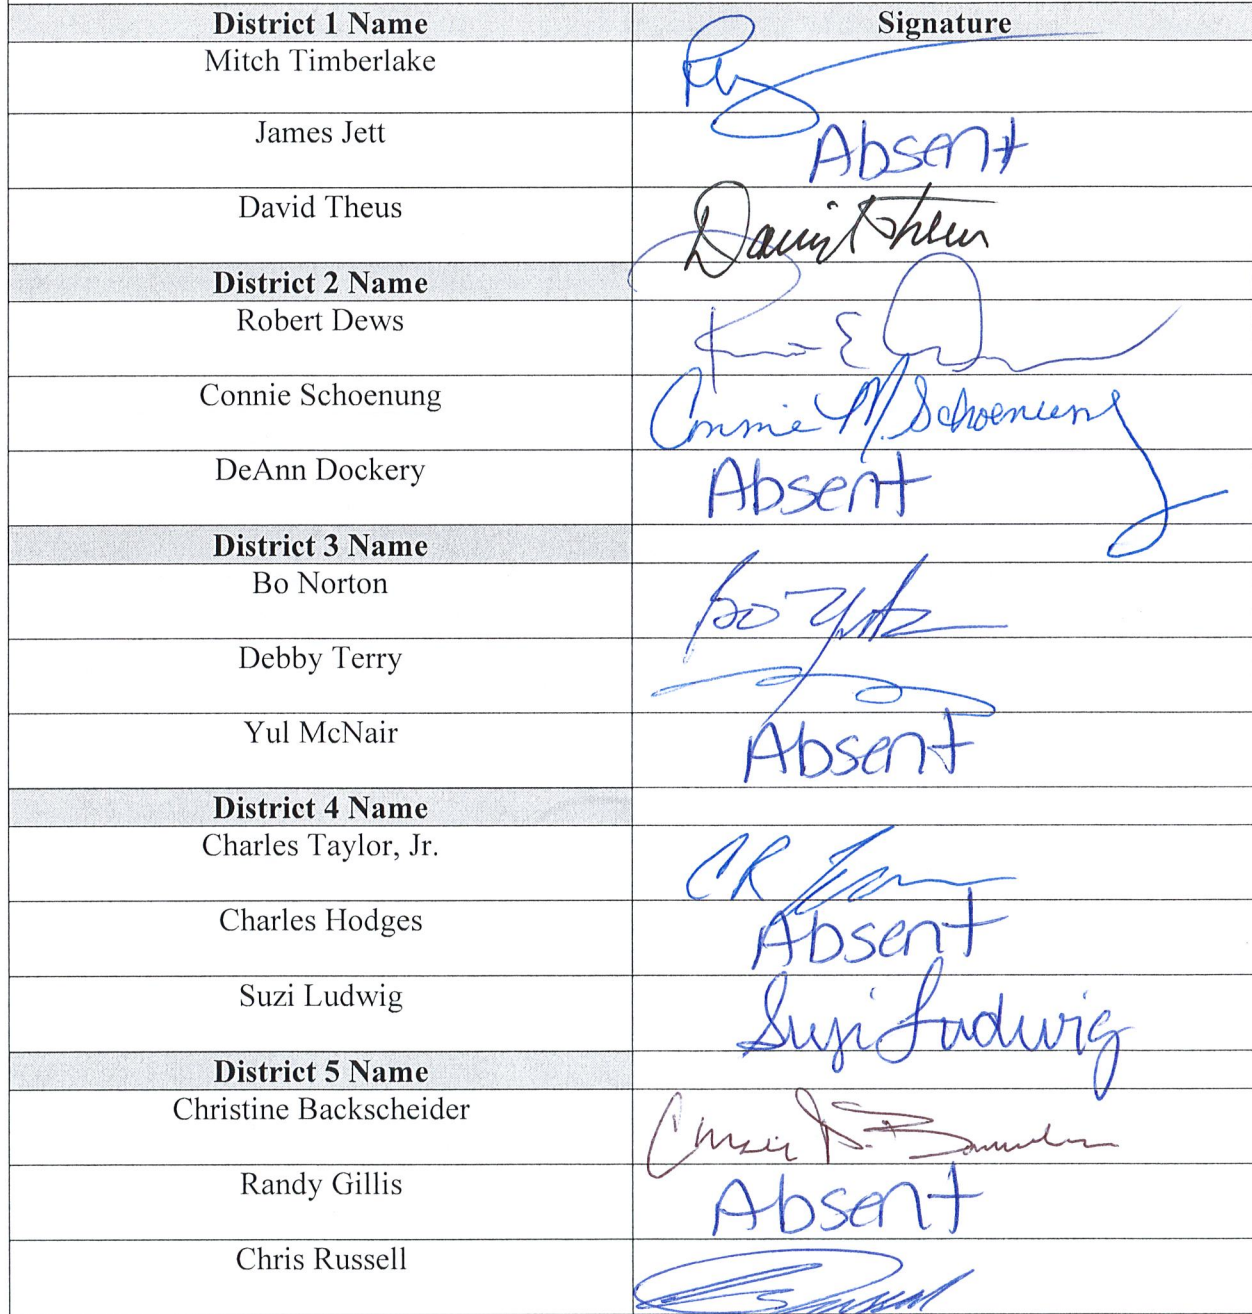 District 1 Name Signature
Mitch Timberlake
James Jett Absent
David Theus David Theus
District 2 Name
Robert Dews
Connie Schoenung Connie M. Schoenung
DeAnn Dockery Absent
District 3 Name
Bo Norton Bo
Debby Terry
Yul McNair Absent
District 4 Name
Charles Taylor, Jr. CR
Charles Hodges Absent
Suzi Ludwig Suzi Ludwig
District 5 Name
Christine Backscheider
Randy Gillis Absent
Chris Russell